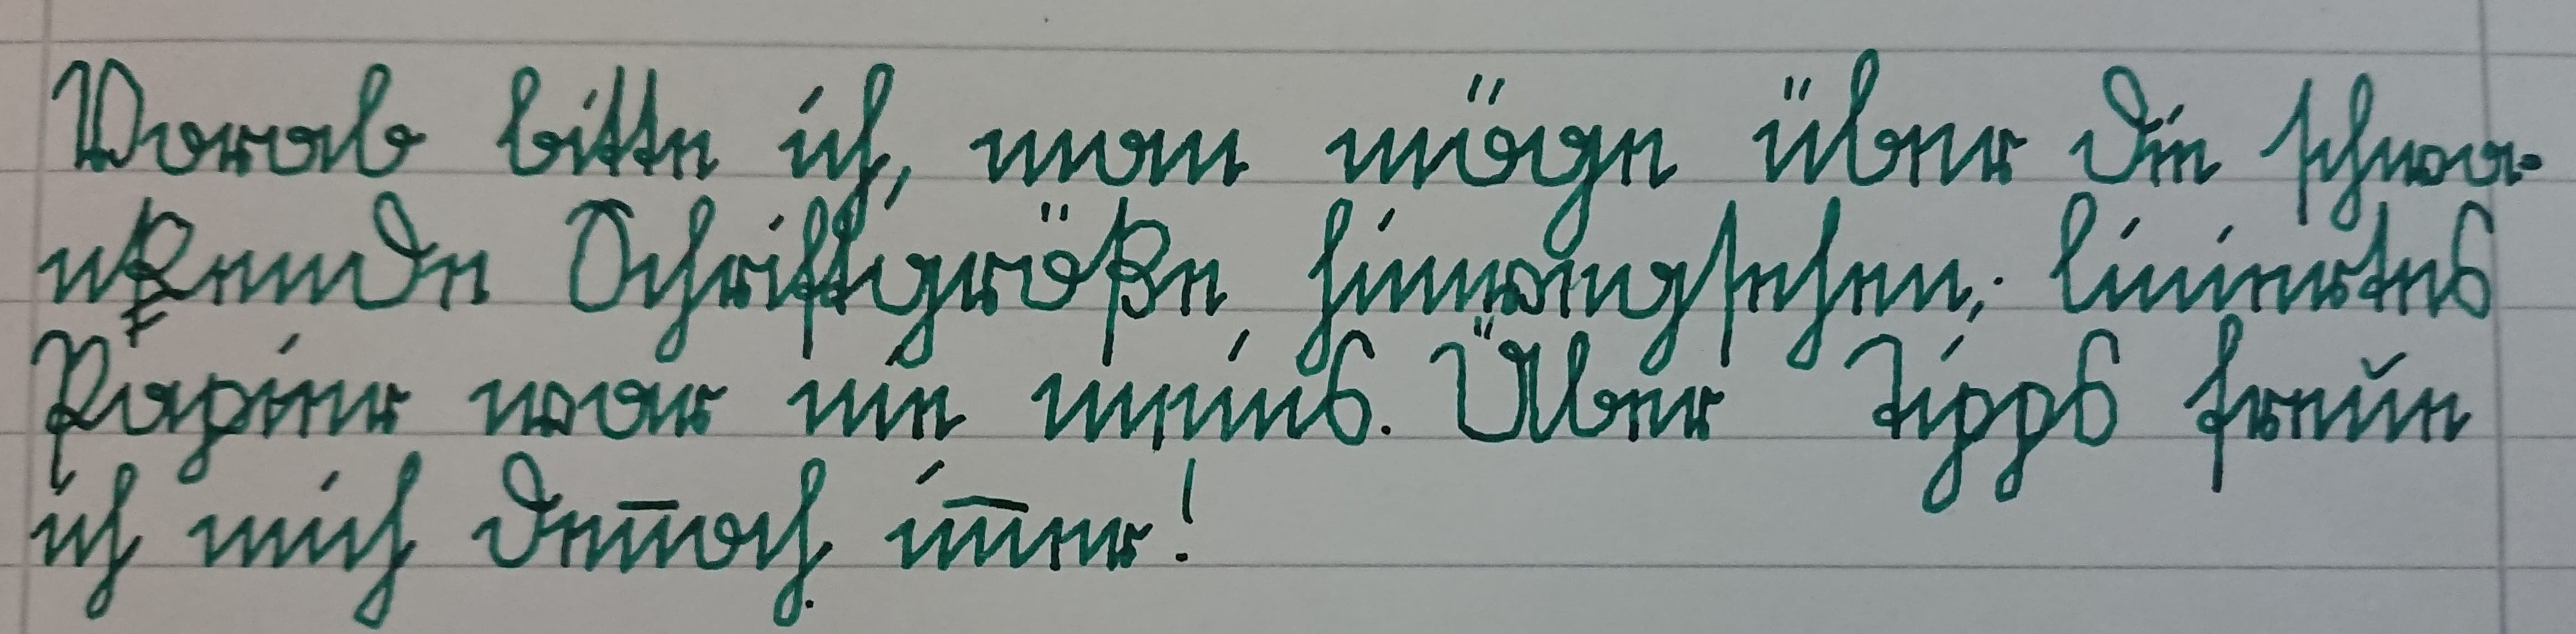 Vorab bitte ich, man möge über die schwa-
nkende Schriftgröße hinwegsehen; liniertes
Papier war nie meins. Über Tipps freue
ich mich den̄och im̄er!